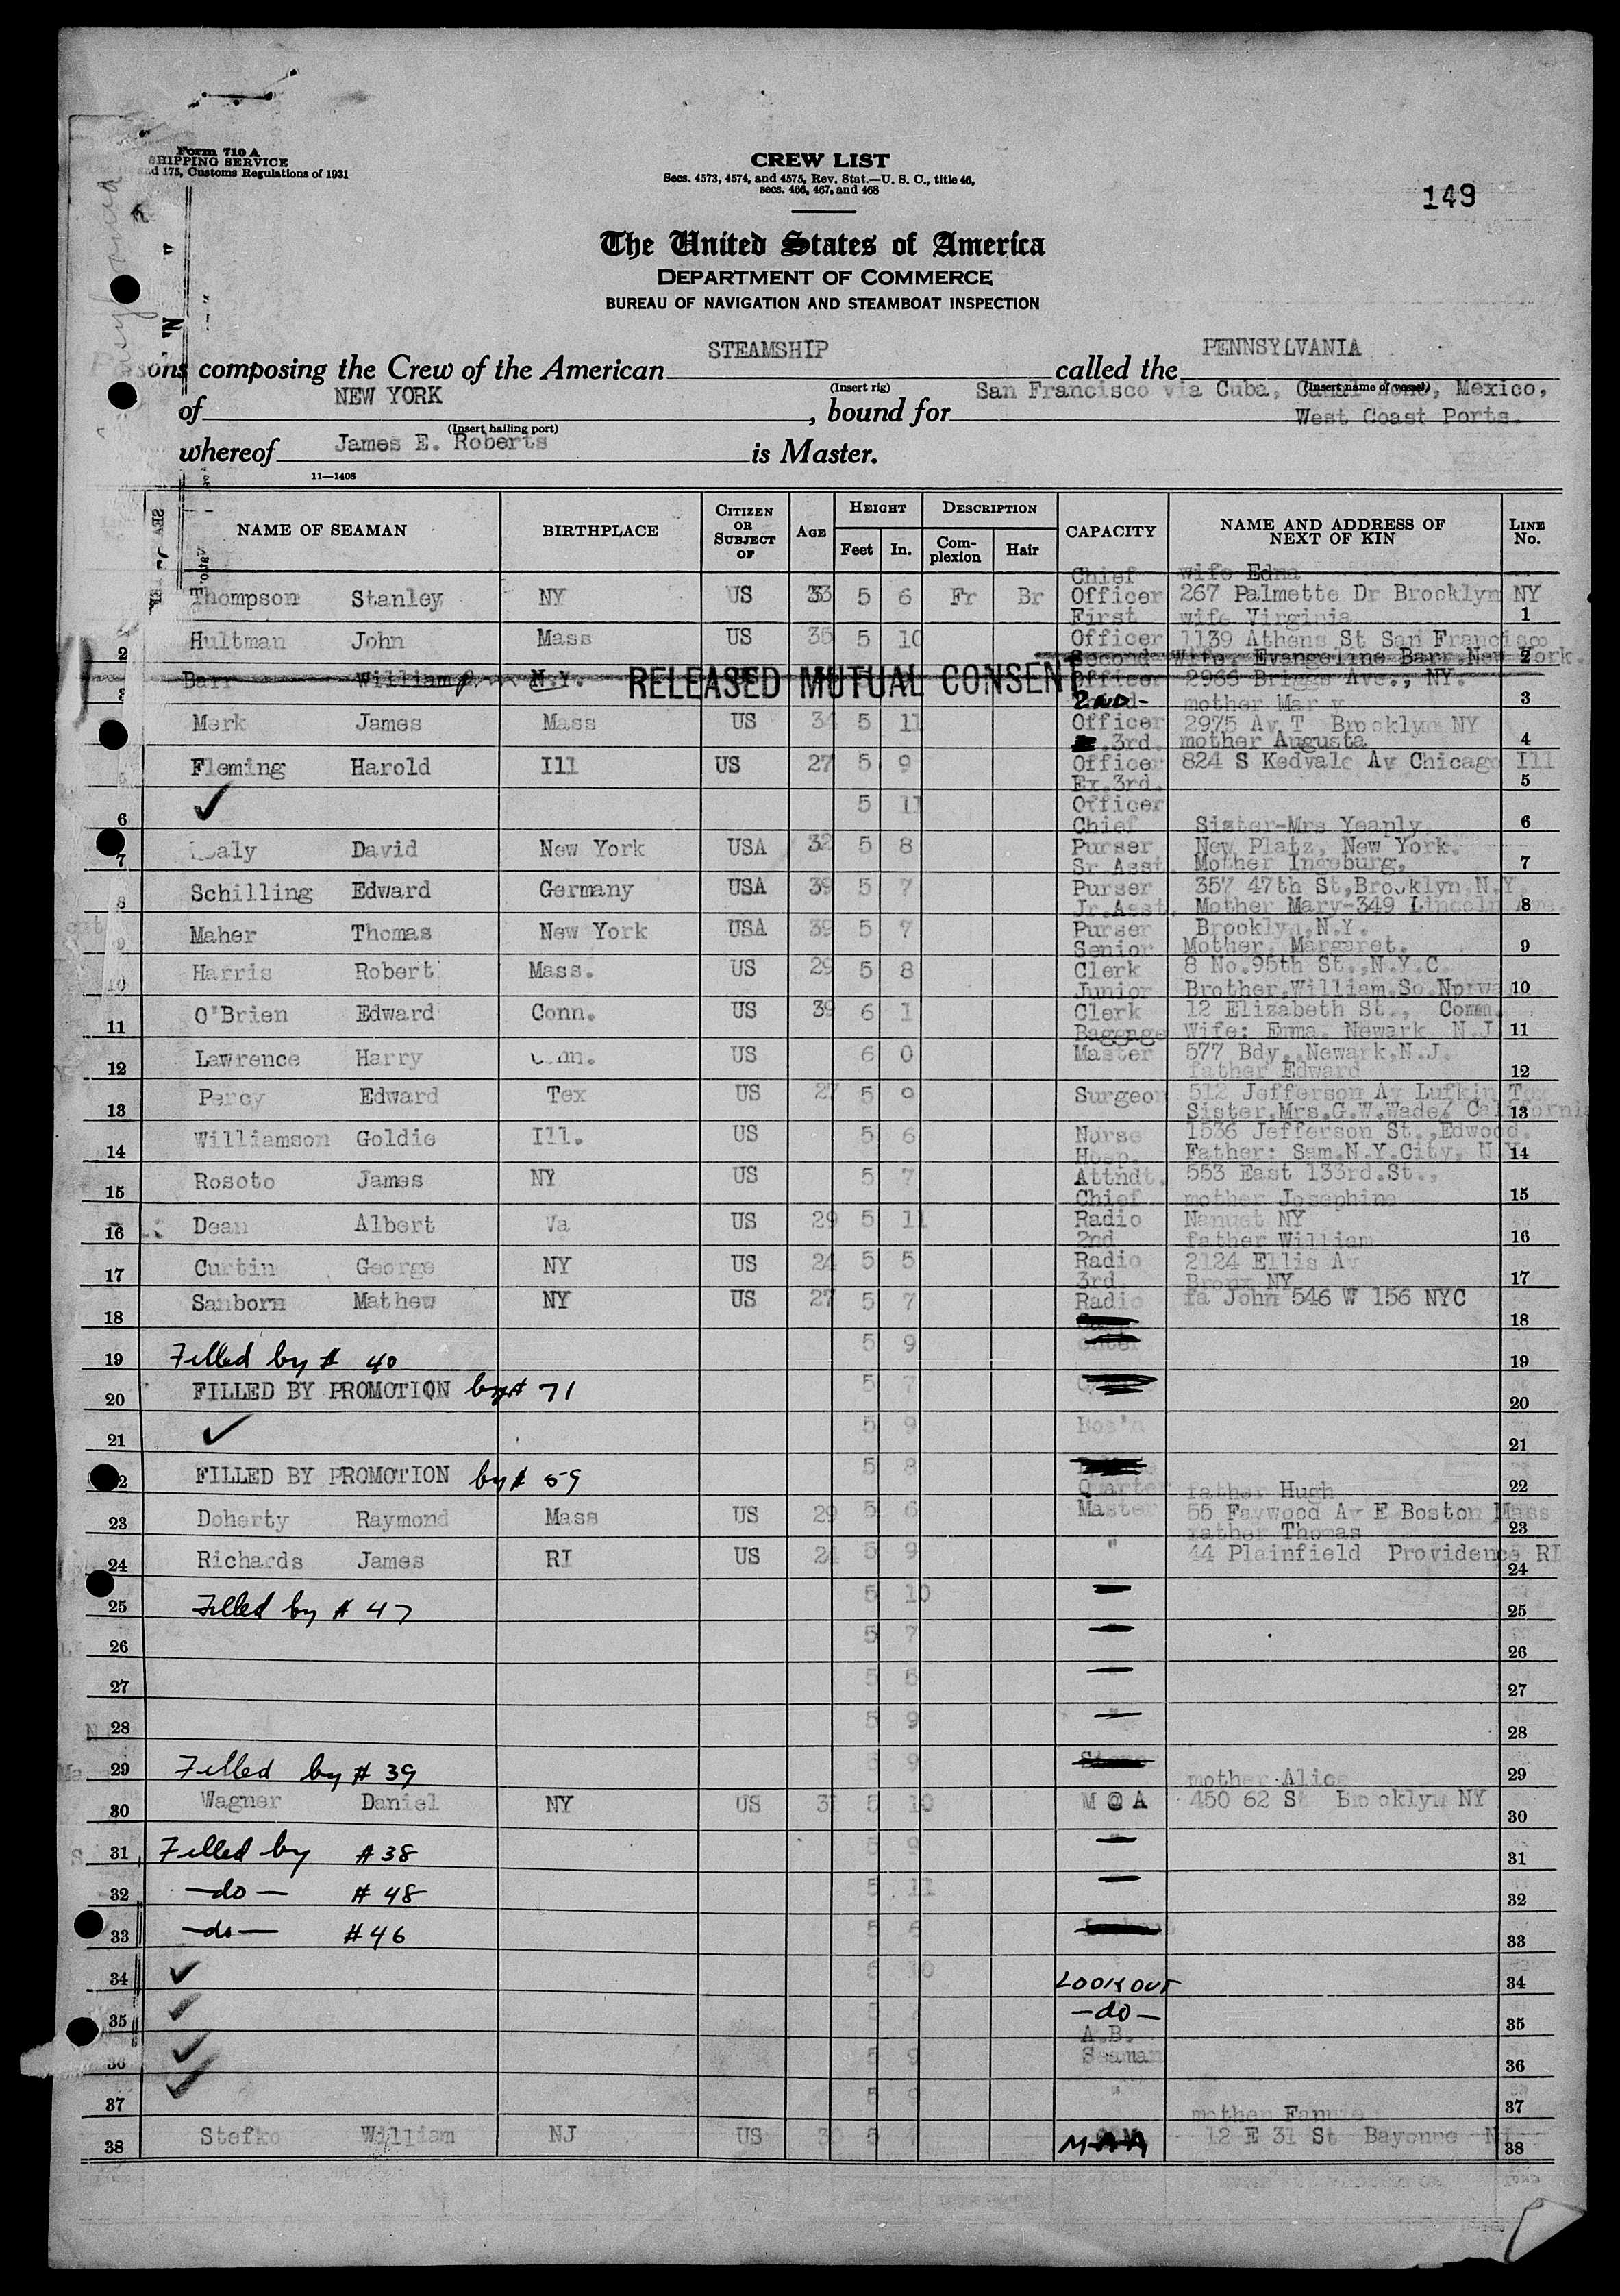 Form 710 A
SHIPPING SERVICE
175, Customs Regulations of 1931
CREW LIST
Secs. 4573, 4574, and 4575, Rev. Stat.—U. S. C., title 46,
secs. 466, 467, and 468
149
The United States of America
DEPARTMENT OF COMMERCE
BUREAU OF NAVIGATION AND STEAMBOAT INSPECTION
composing the Crew of the American STEAMSHIP called the PENNSYLVANIA
(Insert rig) (Insert name of vessel)
of NEW YORK, bound for San Francisco via Cuba, Canal Zone, Mexico,
West Coast Ports.
(Insert hailing port)
whereof James E. Roberts is Master.
11—1408
NAME OF SEAMAN BIRTHPLACE CITIZEN OR SUBJECT OF AGE HEIGHT Feet In. DESCRIPTION Complexion Hair CAPACITY NAME AND ADDRESS OF NEXT OF KIN LINE No.
Chief wife Edna
Thompson Stanley NY US 33 5 6 Fr Br Officer 267 Palmette Dr Brooklyn NY
First wife Virginia 1
Hultman John Mass US 35 5 10 Officer 1139 Athens St San Francisco
2 Second Wife, Evangeline Barr, New York. 2
Barr William N.Y. RELEASED MUTUAL CONSENT Officer 2966 Briggs Ave., NY.
3 2ND- mother Mary 3
Merk James Mass US 34 5 11 Officer 2975 Av T Brooklyn NY
3rd. mother Augusta 4
Fleming Harold Ill US 27 5 9 Officer 824 S Kedvale Av Chicago Ill
Ex.3rd. 5
✓ 5 11 Officer
6 Chief Sister-Mrs Yeaply 6
David New York USA 32 5 8 Purser New Platz, New York.
7 Sr.Asst. Mother Ingeburg, 7
Schilling Edward Germany USA 39 5 7 Purser 357 47th St, Brooklyn, N.Y.
8 Jr.Asst. Mother Mary-349 Lincoln 8
Maher Thomas New York USA 39 5 7 Purser Brooklyn, N.Y.
9 Senior Mother, Margaret. 9
Harris Robert Mass. US 29 5 8 Clerk 8 No.95th St., N.Y.C.
10 Junior Brother, William. So. Norwa 10
O'Brien Edward Conn. US 39 6 1 Clerk 12 Elizabeth St., Conn.
11 Baggage Wife: Emma. Newark N.J. 11
Lawrence Harry US 6 0 Master 577 Bdy., Newark, N.J.
12 father Edward 12
Percy Edward Tex US 27 5 9 Surgeon 512 Jefferson Av Lufkin Tex
13 Sister, Mrs. G.W. Wade, California 13
Williamson Goldie Ill. US 5 6 Nurse 1536 Jefferson St., Edwood.
14 Hosp. Father: Sam. N.Y. City, N.Y. 14
Rosoto James NY US 5 7 Attndt. 553 East 133rd. St.,
15 Chief mother Josephine 15
Dean Albert Va US 29 5 11 Radio Nanuet NY
16 2nd father William 16
Curtin George NY US 24 5 5 Radio 2124 Ellis Av
17 3rd. Bronx NY 17
Sanborn Mathew NY US 27 5 7 Radio fa John 546 W 156 NYC
18 18
5 9
19 Filled by # 40 19
20 FILLED BY PROMOTION by # 71 5 7 20
21 ✓ 5 9 Bos'n 21
22 FILLED BY PROMOTION by # 59 5 8 22
Quarter father Hugh
Doherty Raymond Mass US 29 5 6 Master 55 Faywood Av E Boston Mass
23 father Thomas 23
24 Richards James RI US 24 5 9 " 44 Plainfield Providence RI 24
25 Filled by # 47 5 10 25
26 5 7 26
27 5 6 27
28 5 9 28
29 Filled by # 39 5 9 29
mother Alice
30 Wagner Daniel NY US 31 5 10 M @ A 450 62 St Brooklyn NY 30
31 Filled by # 38 5 9 31
32 —do— # 48 5 11 32
33 —do— # 46 5 6 33
34 ✓ 5 10 LOOKOUT 34
35 ✓ 5 —do— 35
A.B.
36 ✓ 5 9 Seaman 36
37 ✓ 5 9 " 37
mother Fannie
38 Stefko William NJ US 30 5 7 M-A-A 12 E 31 St Bayonne NJ 38